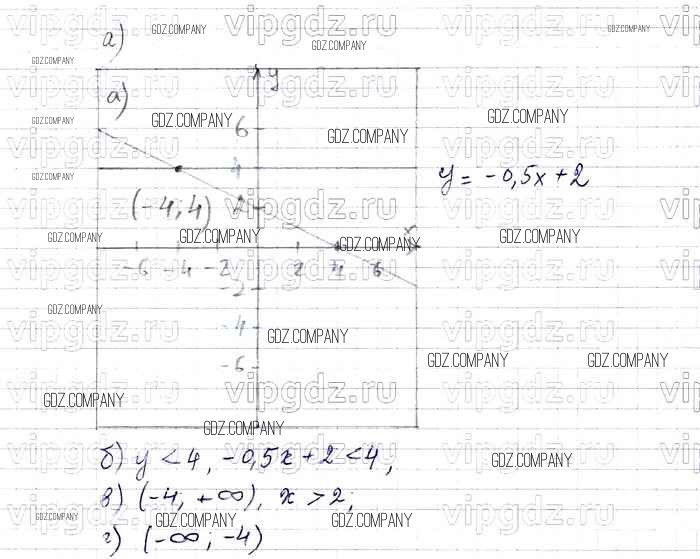 а)
а)
y
6
4
2
(-4; 4)
y = -0,5x + 2
x
-6 -4 -2 2 4 6
-2
-4
-6
б) y < 4, -0,5x + 2 < 4;
в) (-4; +∞), x > 2;
г) (-∞; -4)
vipgdz.ru
GDZ.COMPANY